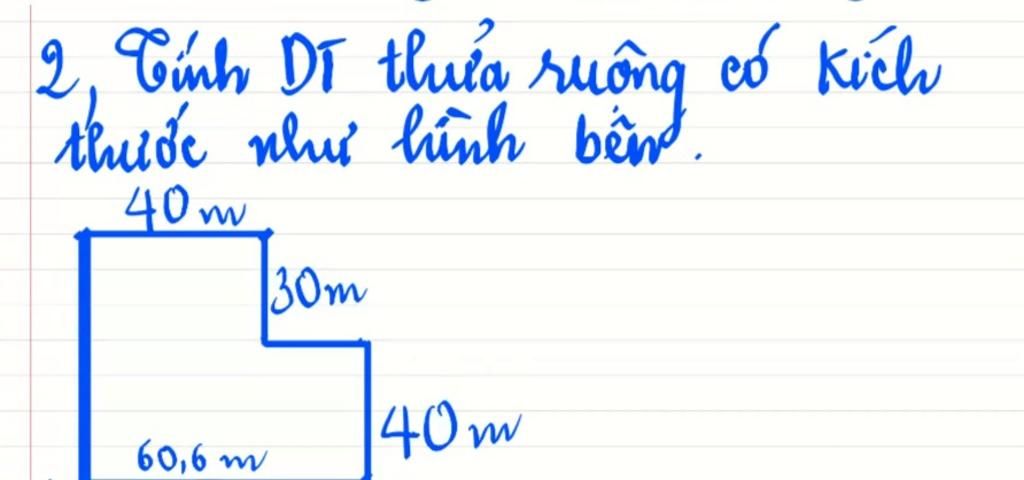 2, Tính DT thửa ruộng có kích
thước như hình bên.
40 m
30m
40 m
60,6 m